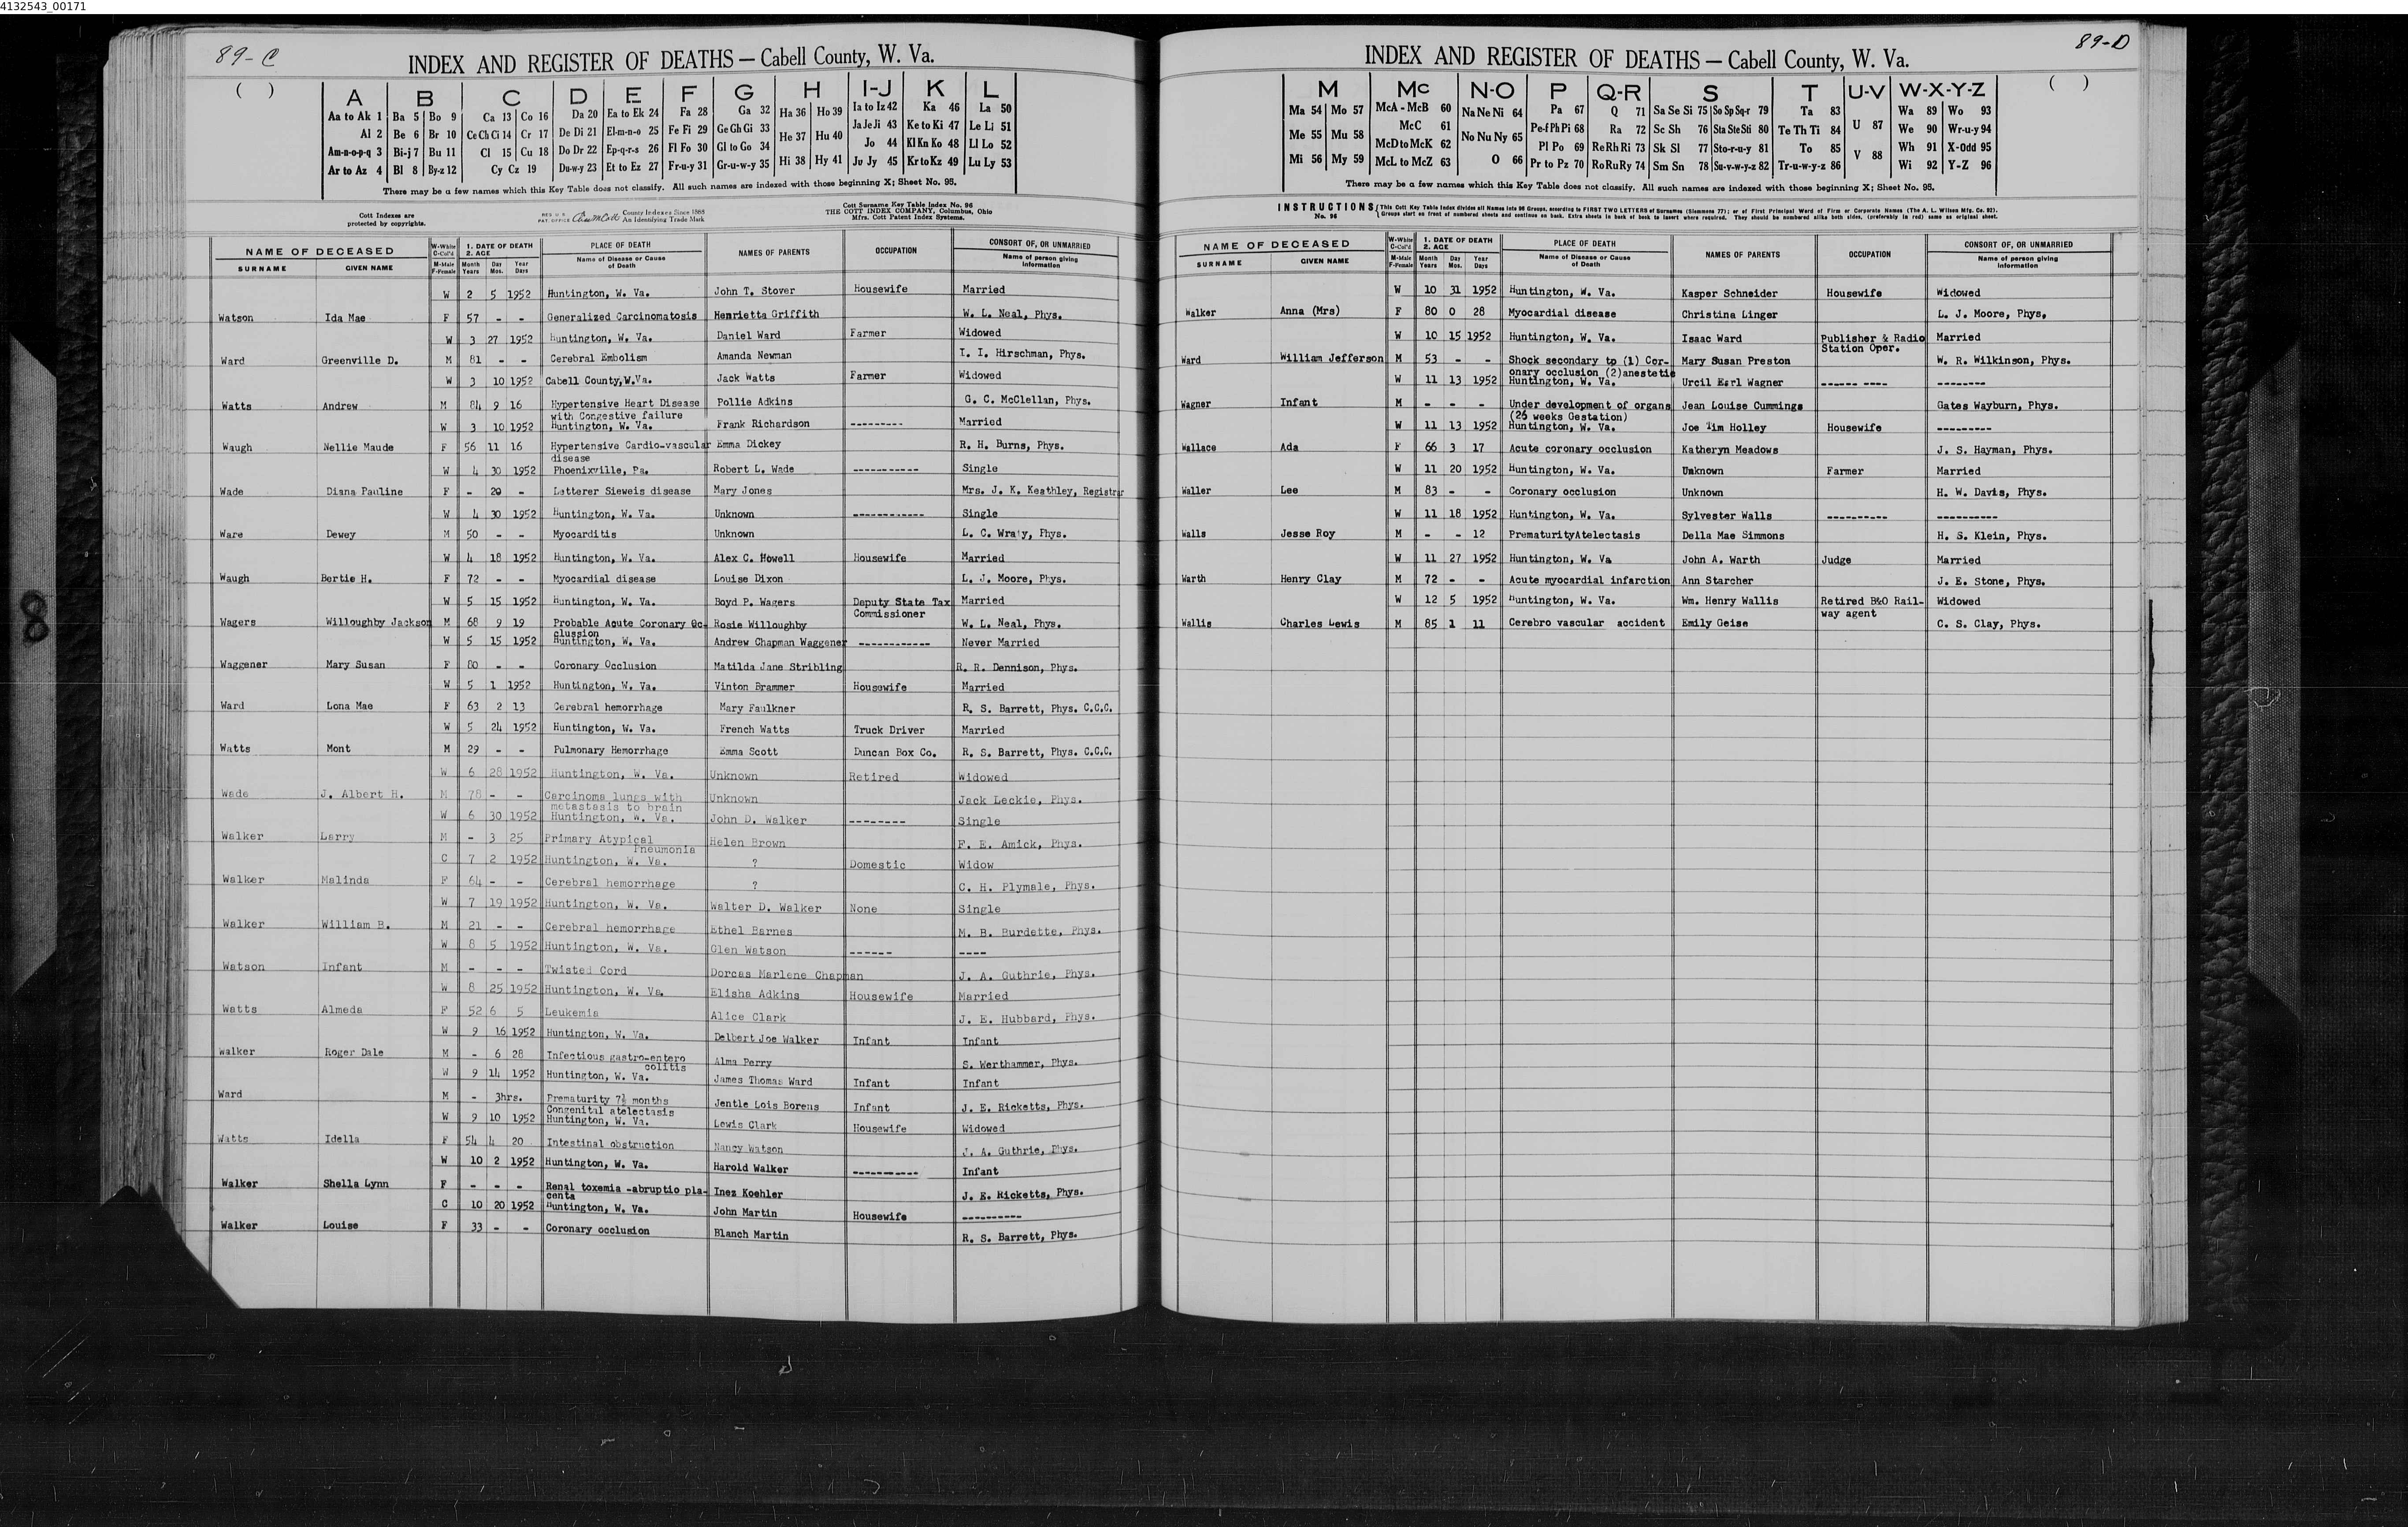 4132543_00171
89-C
INDEX AND REGISTER OF DEATHS — Cabell County, W. Va.
( )
A B C D E F G H I-J K L
Aa to Ak 1 Ba 5 Bo 9 Ca 13 Co 16 Da 20 Ea to Ek 24 Fa 28 Ga 32 Ha 36 Ho 39 Ia to Iz 42 Ka 46 La 50
Al 2 Be 6 Br 10 Ce Ch Ci 14 Cr 17 De Di 21 El-m-n-o 25 Fe Fi 29 Ge Gh Gi 33 He 37 Hu 40 Ja Je Ji 43 Ke to Ki 47 Le Li 51
Am-n-o-p-q 3 Bi-j 7 Bu 11 Cl 15 Cu 18 Do Dr 22 Ep-q-r-s 26 Fl Fo 30 Gl to Go 34 Hi 38 Hy 41 Jo 44 Kl Kn Ko 48 Ll Lo 52
Ar to Az 4 Bl 8 By-z 12 Cy Cz 19 Du-w-y 23 Et to Ez 27 Fr-u-y 31 Gr-u-w-y 35 Ju Jy 45 Kr to Kz 49 Lu Ly 53
There may be a few names which this Key Table does not classify. All such names are indexed with those beginning X; Sheet No. 95.
Cott Indexes are protected by copyrights.
REG. U.S. PAT. OFFICE County Indexes Since 1888 An Identifying Trade Mark
Cott Surname Key Table Index No. 96
THE COTT INDEX COMPANY, Columbus, Ohio
Mfrs. Cott Patent Index Systems.
NAME OF DECEASED W-White C-Col'd 1. DATE OF DEATH 2. AGE PLACE OF DEATH NAMES OF PARENTS OCCUPATION CONSORT OF, OR UNMARRIED
SURNAME GIVEN NAME M-Male F-Female Month Years Day Mos. Year Days Name of Disease or Cause of Death Name of person giving information
W 2 5 1952 Huntington, W. Va. John T. Stover Housewife Married
Watson Ida Mae F 57 - - Generalized Carcinomatosis Henrietta Griffith W. L. Neal, Phys.
W 3 27 1952 Huntington, W. Va. Daniel Ward Farmer Widowed
Ward Greenville D. M 81 - - Cerebral Embolism Amanda Newman I. I. Hirschman, Phys.
W 3 10 1952 Cabell County,W.Va. Jack Watts Farmer Widowed
Watts Andrew M 84 9 16 Hypertensive Heart Disease Pollie Adkins G. C. McClellan, Phys.
with Congestive failure
W 3 10 1952 Huntington, W. Va. Frank Richardson --------- Married
Waugh Nellie Maude F 56 11 16 Hypertensive Cardio-vascular Emma Dickey R. H. Burns, Phys.
disease
W 4 30 1952 Phoenixville, Pa. Robert L. Wade ----------- Single
Wade Diana Pauline F - 20 - Letterer Sieweis disease Mary Jones Mrs. J. K. Keathley, Registrar
W 4 30 1952 Huntington, W. Va. Unknown ------------ Single
Ware Dewey M 50 - - Myocarditis Unknown L. C. Wraty, Phys.
W 4 18 1952 Huntington, W. Va. Alex C. Howell Housewife Married
Waugh Bertie H. F 72 - - Myocardial disease Louise Dixon L. J. Moore, Phys.
W 5 15 1952 Huntington, W. Va. Boyd P. Wagers Deputy State Tax Married
Commissioner
Wagers Willoughby Jackson M 68 9 19 Probable Acute Coronary Oc- Rosie Willoughby W. L. Neal, Phys.
clussion
W 5 15 1952 Huntington, W. Va. Andrew Chapman Waggener ------------ Never Married
Waggener Mary Susan F 80 - - Coronary Occlusion Matilda Jane Stribling R. R. Dennison, Phys.
W 5 1 1952 Huntington, W. Va. Vinton Brammer Housewife Married
Ward Lona Mae F 63 2 13 Cerebral hemorrhage Mary Faulkner R. S. Barrett, Phys. C.C.C.
W 5 24 1952 Huntington, W. Va. French Watts Truck Driver Married
Watts Mont M 29 - - Pulmonary Hemorrhage Emma Scott Duncan Box Co. R. S. Barrett, Phys. C.C.C.
W 6 28 1952 Huntington, W. Va. Unknown Retired Widowed
Wade J. Albert H. M 78 - - Carcinoma lungs with Unknown Jack Leckie, Phys.
metastasis to brain
W 6 30 1952 Huntington, W. Va. John D. Walker -------- Single
Walker Larry M - 3 25 Primary Atypical Helen Brown F. E. Amick, Phys.
Pneumonia
C 7 2 1952 Huntington, W. Va. ? Domestic Widow
Walker Malinda F 64 - - Cerebral hemorrhage ? C. H. Plymale, Phys.
W 7 19 1952 Huntington, W. Va. Walter D. Walker None Single
Walker William B. M 21 - - Cerebral hemorrhage Ethel Barnes M. B. Burdette, Phys.
W 8 5 1952 Huntington, W. Va. Glen Watson ------ ----
Watson Infant M - - - Twisted Cord Dorcas Marlene Chapman J. A. Guthrie, Phys.
W 8 25 1952 Huntington, W. Va. Elisha Adkins Housewife Married
Watts Almeda F 52 6 5 Leukemia Alice Clark J. E. Hubbard, Phys.
W 9 16 1952 Huntington, W. Va. Delbert Joe Walker Infant Infant
Walker Roger Dale M - 6 28 Infectious gastro-entero Alma Perry S. Werthammer, Phys.
colitis
W 9 14 1952 Huntington, W. Va. James Thomas Ward Infant Infant
Ward M - 3hrs. Prematurity 7½ months Jentle Lois Borens Infant J. E. Ricketts, Phys.
Congenital atelectasis
W 9 10 1952 Huntington, W. Va. Lewis Clark Housewife Widowed
Watts Idella F 54 4 20 Intestinal obstruction Nancy Watson J. A. Guthrie, Phys.
W 10 2 1952 Huntington, W. Va. Harold Walker ----------- Infant
Walker Shella Lynn F - - - Renal toxemia -abruptio pla- Inez Koehler J. E. Ricketts, Phys.
centa
C 10 20 1952 Huntington, W. Va. John Martin Housewife ----------
Walker Louise F 33 - - Coronary occlusion Blanch Martin R. S. Barrett, Phys.
89-D
INDEX AND REGISTER OF DEATHS — Cabell County, W. Va.
( )
M Mc N-O P Q-R S T U-V W-X-Y-Z
Ma 54 Mo 57 McA - McB 60 Na Ne Ni 64 Pa 67 Q 71 Sa Se Si 75 So Sp Sq-r 79 Ta 83 U 87 Wa 89 Wo 93
Me 55 Mu 58 McC 61 No Nu Ny 65 Pe-f Ph Pi 68 Ra 72 Sc Sh 76 Sta Ste Sti 80 Te Th Ti 84 V 88 We 90 Wr-u-y 94
Mi 56 My 59 McD to McK 62 O 66 Pl Po 69 Re Rh Ri 73 Sk Sl 77 Sto-r-u-y 81 To 85 Wh 91 X-Odd 95
McL to McZ 63 Pr to Pz 70 Ro Ru Ry 74 Sm Sn 78 Su-v-w-y-z 82 Tr-u-w-y-z 86 Wi 92 Y-Z 96
There may be a few names which this Key Table does not classify. All such names are indexed with those beginning X; Sheet No. 95.
INSTRUCTIONS No. 96 This Cott Key Table Index divides all Names into 96 Groups, according to FIRST TWO LETTERS of Surnames (Slemmons 77); or of First Principal Word of Firm or Corporate Names (The A. L. Wilson Mfg. Co. 92).
Groups start on front of numbered sheets and continue on back. Extra sheets in back of book to insert where required. They should be numbered alike both sides, (preferably in red) same as original sheet.
NAME OF DECEASED W-White C-Col'd 1. DATE OF DEATH 2. AGE PLACE OF DEATH NAMES OF PARENTS OCCUPATION CONSORT OF, OR UNMARRIED
SURNAME GIVEN NAME M-Male F-Female Month Years Day Mos. Year Days Name of Disease or Cause of Death Name of person giving information
W 10 31 1952 Huntington, W. Va. Kasper Schneider Housewife Widowed
Walker Anna (Mrs) F 80 0 28 Myocardial disease Christina Linger L. J. Moore, Phys.
W 10 15 1952 Huntington, W. Va. Isaac Ward Publisher & Radio Married
Station Oper.
Ward William Jefferson M 53 - - Shock secondary tp (1) Cor- Mary Susan Preston W. R. Wilkinson, Phys.
onary occlusion (2)anestetic
W 11 13 1952 Huntington, W. Va. Urcil Earl Wagner ------ ---- --------
Wagner Infant M - - - Under development of organs Jean Louise Cummings Gates Wayburn, Phys.
(26 weeks Gestation)
W 11 13 1952 Huntington, W. Va. Joe Tim Holley Housewife ---------
Wallace Ada F 66 3 17 Acute coronary occlusion Katheryn Meadows J. S. Hayman, Phys.
W 11 20 1952 Huntington, W. Va. Unknown Farmer Married
Waller Lee M 83 - - Coronary occlusion Unknown H. W. Davis, Phys.
W 11 18 1952 Huntington, W. Va. Sylvester Walls ---------- ----------
Walls Jesse Roy M - - 12 PrematurityAtelectasis Della Mae Simmons H. S. Klein, Phys.
W 11 27 1952 Huntington, W. Va John A. Warth Judge Married
Warth Henry Clay M 72 - - Acute myocardial infarction Ann Starcher J. E. Stone, Phys.
W 12 5 1952 Huntington, W. Va. Wm. Henry Wallis Retired B&O Rail- Widowed
way agent
Wallis Charles Lewis M 85 1 11 Cerebro vascular accident Emily Geise C. S. Clay, Phys.
8